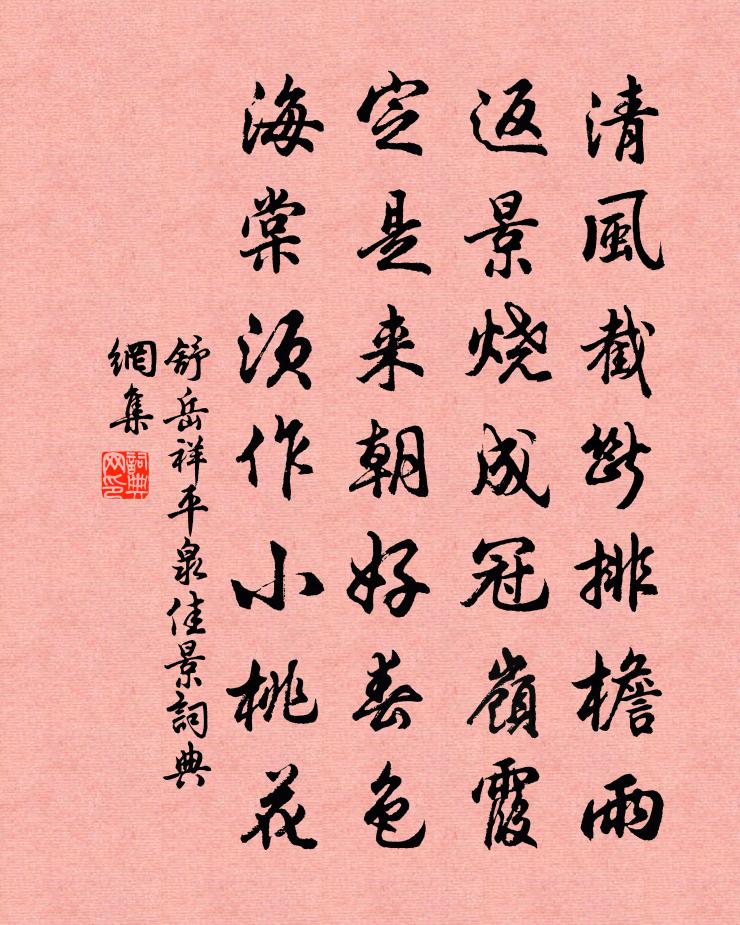 清風截斷排檐雨
返景燒成冠嶺霞
定是来朝好春色
海棠須作小桃花
舒岳祥平泉佳景詞典
網集
詞典
网印